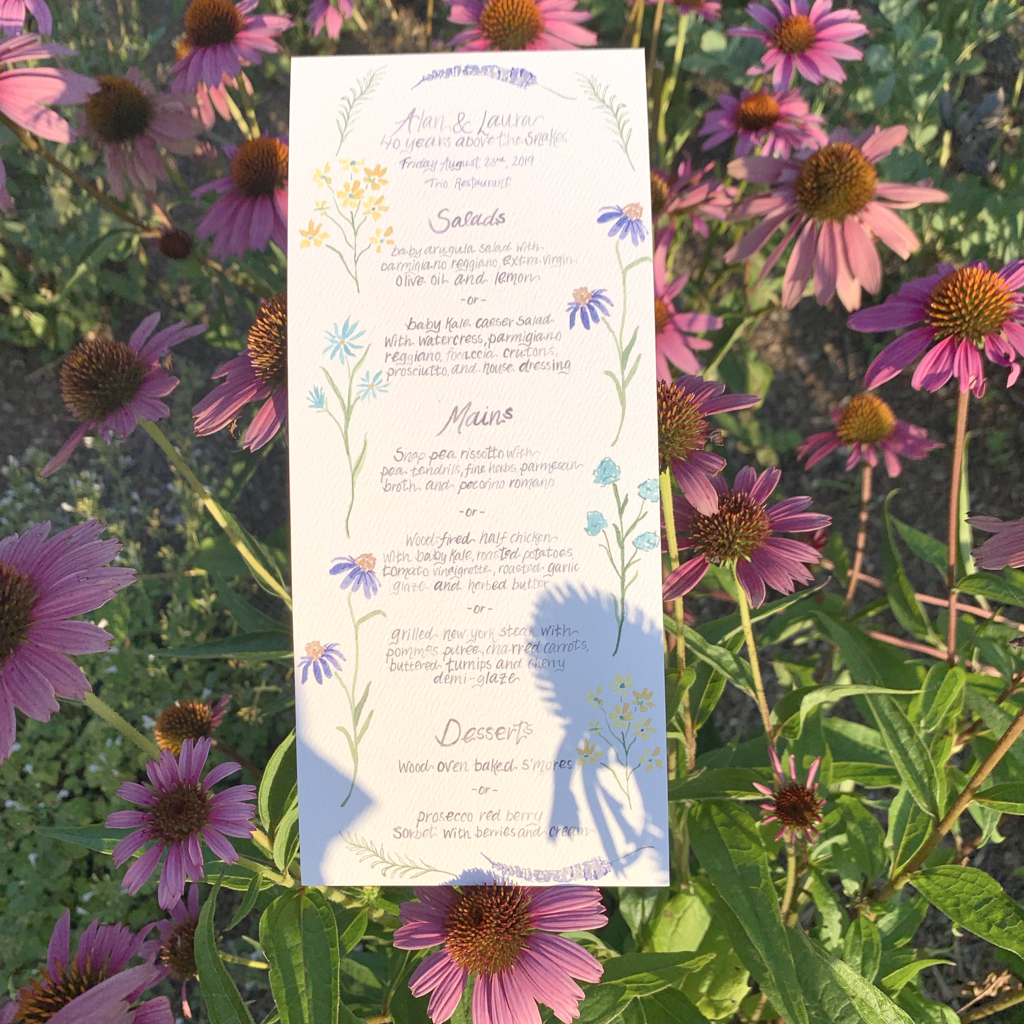 Alan & Laura
40 years above the Snake
Friday August 23rd, 2019
Trio Restaurant
Salads
baby arugula salad with
parmigiano reggiano, extra virgin
olive oil and lemon
-or-
baby kale caeser salad
with watercress, parmigiano
reggiano, foccacia crutons,
prosciutto, and house dressing
Mains
Snap pea rissotto with
pea tendrils, fine herbs, parmesan
broth and pecorino romano
-or-
Wood fired half chicken
with baby kale, roasted potatoes,
tomato vinaigrette, roasted garlic
glaze and herbed butter
-or-
grilled new york steak with
pommes purée, charred carrots,
buttered turnips and cherry
demi-glaze
Desserts
Wood oven baked s'mores
-or-
prosecco red berry
Sorbet with berries and cream